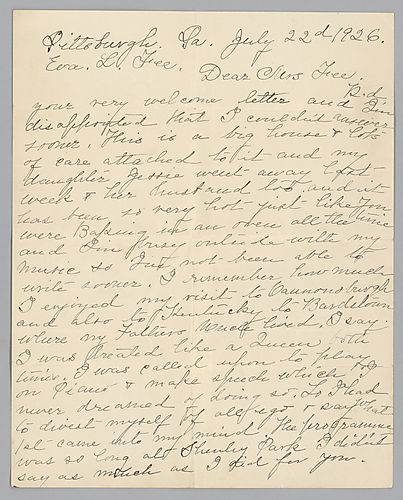 Pittsburgh. Pa. July 22d 1926.
Eva. L. Fee. Dear Mrs Fee.
Rd.
your very welcome letter and I'm
disappointed that I couldn't answer
sooner. This is a big house & lots
of care attached to it and my
daughter Jessie went away last
week & her husband too, and it
has been so very hot just like you
were Baking in an oven all the time
and I'm busy outside with my
music so I've not been able to
write sooner. I remember how much
I enjoyed my visit to Cannonsburgh
and also to Kentucky to Bardstown
where my Fathers Uncle lived. I say.
I was treated like a Queen both
times. I was called upon to play
on Piano & make speech which I'd
never dreamed of doing so. So I had
to divest myself of all ego & say what
1st came into my mind. The programme
was so long at Schenley Park I didn't
say as much as I did for you.